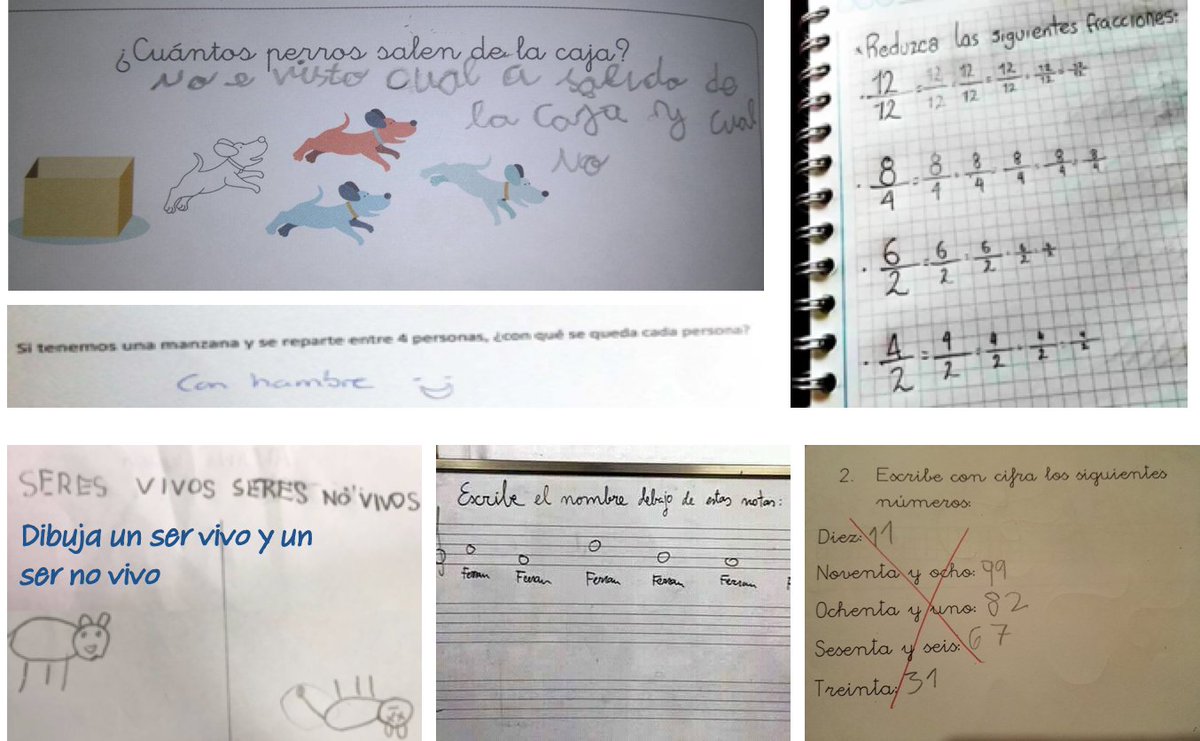 ¿Cuántos perros salen de la caja?
No e visto cual a salido de
la caja y cual
No
Si tenemos una manzana y se reparte entre 4 personas, ¿con qué se queda cada persona?
Con hambre
Reduzca las siguientes fracciones:
12/12 = 12/12 = 12/12 = 12/12 = 12/12 = 12/12
8/4 = 8/4 = 8/4 = 8/4 = 8/4 = 8/4
6/2 = 6/2 = 6/2 = 6/2
4/2 = 4/2 = 4/2 = 4/2 = 4/2
SERES VIVOS SERES NO VIVOS
Dibuja un ser vivo y un
ser no vivo
Escribe el nombre debajo de estas notas:
Ferran Ferran Ferran Ferran Ferran
2. Escribe con cifra los siguientes
números:
Diez: 11
Noventa y ocho: 99
Ochenta y uno: 82
Sesenta y seis: 67
Treinta: 31